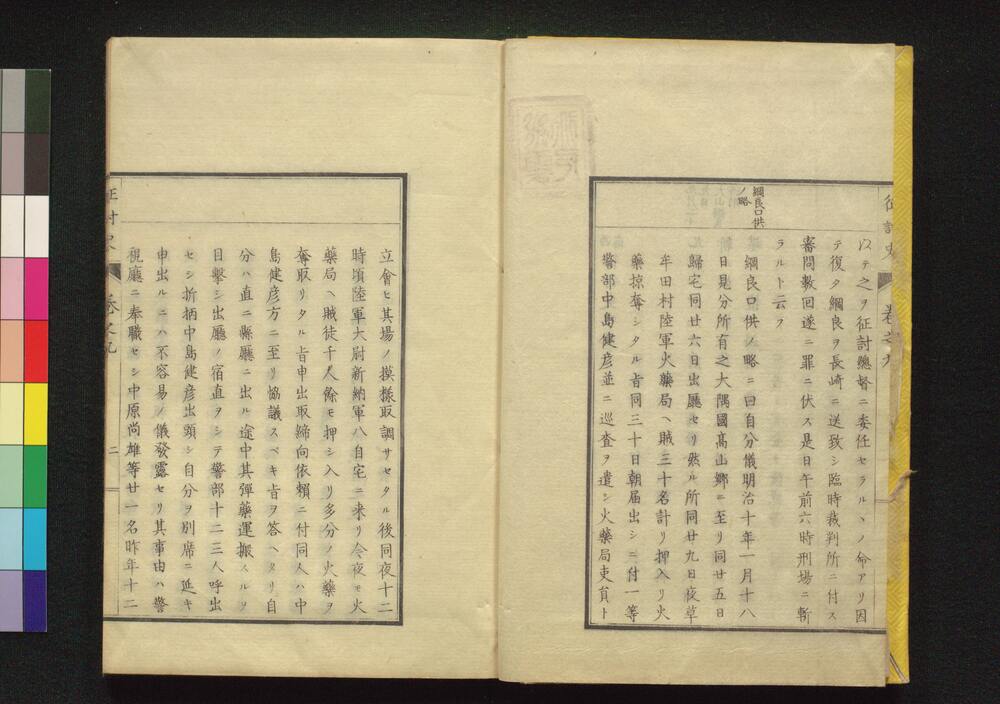 以テ之ヲ征討總督ニ委任セラルヽノ命アリ因
テ復タ綱良ヲ長崎ニ送致シ臨時裁判所ニ付ス
審問數回遂ニ罪ニ伏ス是日午前六時刑場ニ斬
ラルト云フ
綱良口供
ノ略
綱良口供ノ略ニ曰自分儀明治十年一月十八
日見分所有之大隅國髙山鄕ニ至リ同廿五日
歸宅同廿六日出廳セリ然ル所同廿九日夜草
牟田村陸軍火藥局ヘ賊三十名計リ押入リ火
藥掠奪シタル旨同三十日朝届出シニ付一等
警部中島健彦並ニ巡査ヲ遣シ火藥局吏員ト
立會ヒ其場ノ摸樣取調サセタル後同夜十二
時頃陸軍大尉新納軍八自宅ニ来リ今夜モ火
藥局ヘ賊徒千人餘モ押シ入リ多分ノ火藥ヲ
奪取リタル旨申出取締向依賴ニ付同人ハ中
島健彦方ニ至リ協議スベキ旨ヲ答ヘタリ自
分ハ直ニ縣廳ニ出ル途中其彈藥運搬スルヲ
目擊シ出廳ノ宿直ヲシテ警部十二三人呼出
セシ折柄中島健彦出頭シ自分ヲ別席ニ延キ
申出ルニハ不容易ノ儀發露セリ其事由ハ警
視廳ニ奉職セシ中原尚雄等廿一名昨年十二
征討史
卷之九
二